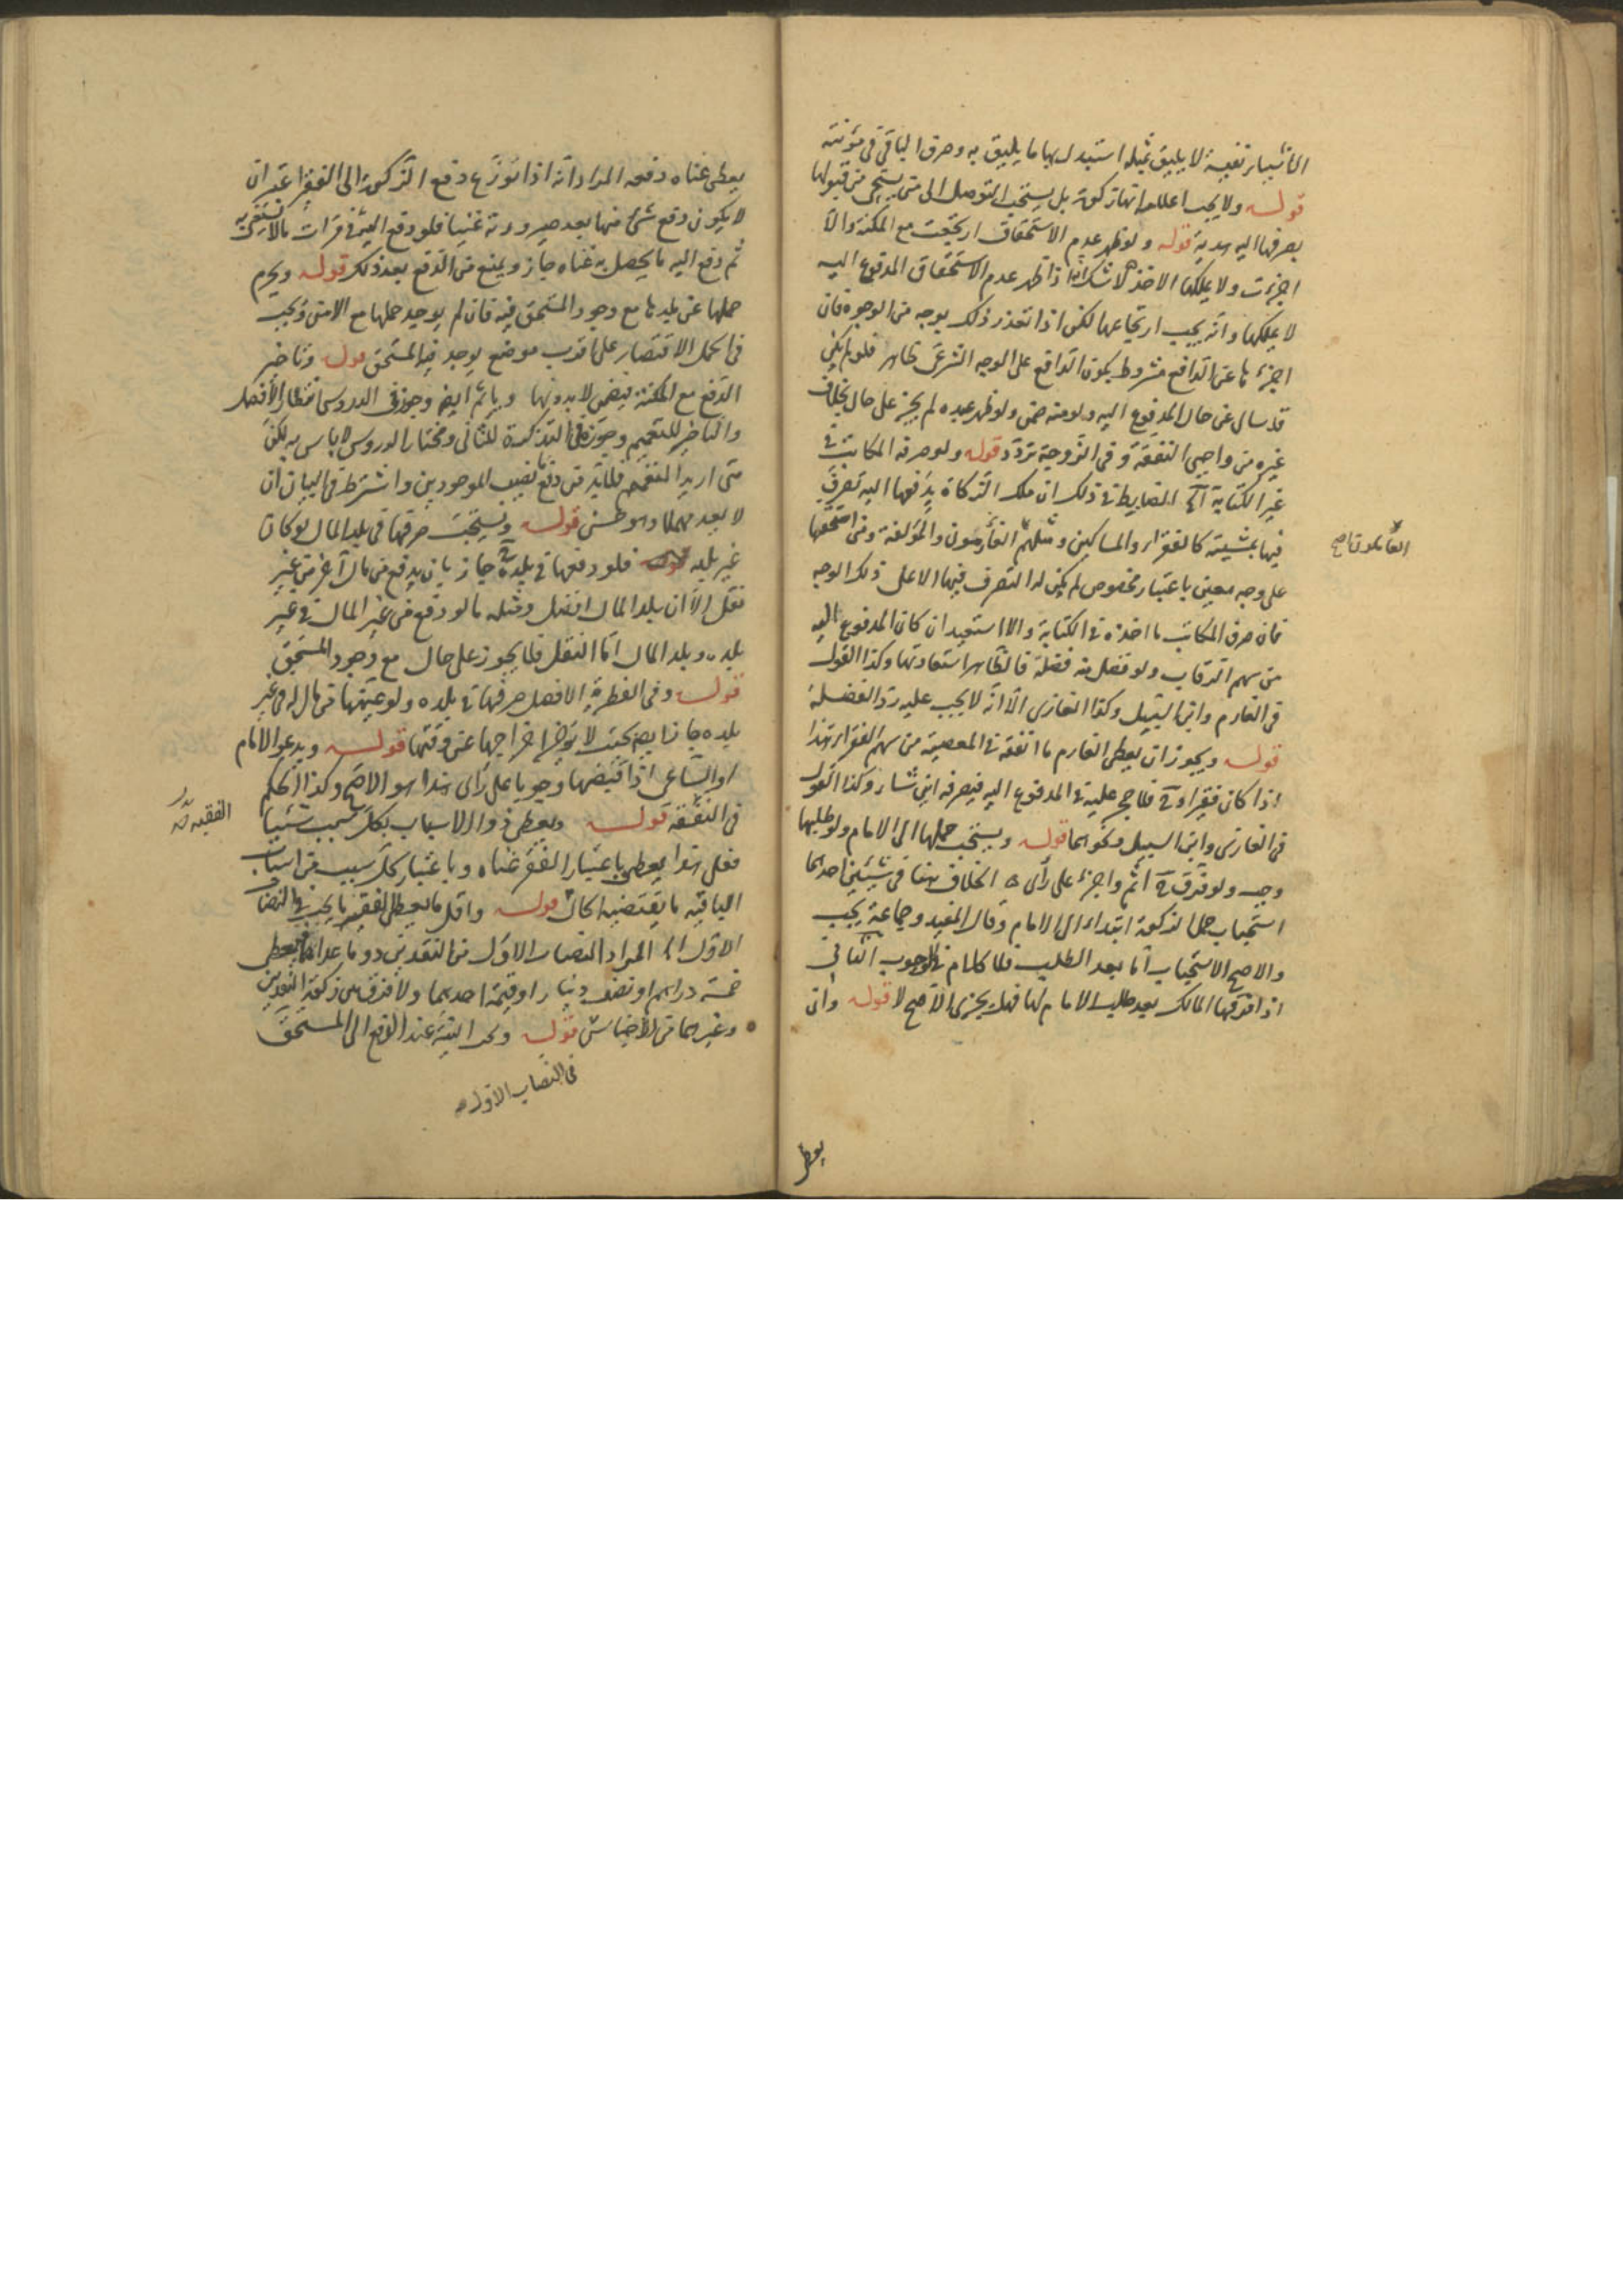 الاشياء نفيسة لا يليق بمثله استبدل بها ما يليق به وصرف الباقى فى مؤنته
قوله ولا يجب اعلامه انها زكوة بل يستحب التوصل الى من يستحيى من قبولها
بصرفها اليه هدية قوله ولو ظهر عدم الاستحقاق ارتجعت مع المكنة والا
اجزءت ولا يملكها الاخذ لا شك انه اذا ظهر عدم الاستحقاق المدفوع اليه
لا يملكها وانه يجب ارتجاعها لكن اذا تعذر ذلك بوجه من الوجوه فان
اجزءها عن الدافع مشروط بكون الدافع على الوجه الشرعى ظاهر فلو لم يكن
قد سال عن حال المدفوع اليه ولو منه ضمن ولو ظهر عبده لم يجز على حال بخلاف
غيره من واجبى النفقة وفى الزوجة تردد قوله ولو صرفه المكاتب فى
غير الكتابة الضابط فى ذلك ان ملك الزكاة بدفعها اليه تصرف
فيها بمشيته كالفقراء والمساكين ومثلهم الغارمون والمؤلفة ومن استحقها
العاملون صح
على وجه معين باعتبار مخصوص لم يكن له التصرف فيها الا على ذلك الوجه
فان صرف المكاتب ما اخذه فى الكتابة والا استعيد ان كان المدفوع اليه
من سهم الرقاب ولو فضل منه فضلة فالظاهر استعادتها وكذا القول
فى الغارم وابن السبيل وكذا الغازى الا انه لا يجب عليه رد الفضلة
قوله ويجوز ان يعطى الغارم ما انفقه فى المعصية من سهم الفقراء هذا
اذا كان فقيرا فلا حجر عليه فى المدفوع اليه فيصرفه اين شاء وكذا القول
فى الغازى وابن السبيل ونحوهما قوله ويستحب حملها الى الامام ولو طلبها
وجب ولو فرق اثم واجزء على رأى الخلاف هنا فى شيئين احدهما
استحباب حمل الزكوة ابتداء الى الامام وقال المفيد وجماعة يجب
والاصح الاستحباب اما بعد الطلب فلا كلام فى الوجوب الثانى
اذا فرقها المالك بعد طلب الامام لها فهل يجزى الاصح لا قوله وان
يعطى
يعطى غناه دفعه المراد انه اذا نوزع دفع الزكوة الى الفقراء غير ان
لا يكون دفع شئ منها بعد صيرورته غنيا فلو دفع اليه فى مرات ما لا يستغنى به
ثم دفع اليه ما يحصل به غناه جاز ويمنع من الدفع بعد ذلك قوله ويحرم
حملها عن بلدها مع وجود المستحق فيه فان لم يوجد حملها مع الامن ويجب
فى الحمل الاقتصار على اقرب موضع يوجد فيه المستحق قوله وتاخير
الدفع مع المكنة فيضمن لا بدونها وياثم ايضا وجوز فى الدروس انتظار الافضل
والتاخير للتعميم وجوز فى التذكرة للثانى ومختار الدروس لا باس به لكن
متى اريد التعميم فلا بد من دفع نصيب الموجودين واشترط فى البيان ان
لا يعد مهملا وهو حسن قوله ويستحب صرفها فى بلد المال لو كان
غير بلده فلو دفعها فى بلده جاز بان يدفع من مال آخر من غير
نقل الا ان بلد المال افضل ومثله ما لو دفع من غير المال فى غير
بلده وبلد المال اما النقل فلا يجوز على حال مع وجود المستحق
قوله وفى الفطرة الافضل صرفها فى بلده ولو عينها من مال له فى غير
بلده جاز ايضا بحيث لا يؤخر اخراجها عن وقتها قوله ويدعو الامام
او الساعى اذا قبضها وجوبا على رأى هذا هو الاصح وكذا الحكم
فى الفقيه قوله ويعطى ذو الاسباب بكل سبب شيئا
الفقيه
فعلى هذا يعطى باعتبار الفقر غناه وباعتبار كل سبب من اسباب
الباقيه ما يقتضيه الحال قوله واقل ما يعطى الفقير ما يجب فى النصاب
الاول المراد النصاب الاول من النقدين دون ما عداهما فيعطى
خمسة دراهم او نصف دينار او قيمة احدهما ولا فرق بين زكوة النقدين
وغيرهما من الاجناس قوله ومحل النية عند الدفع الى المستحق
فى النصاب الاول